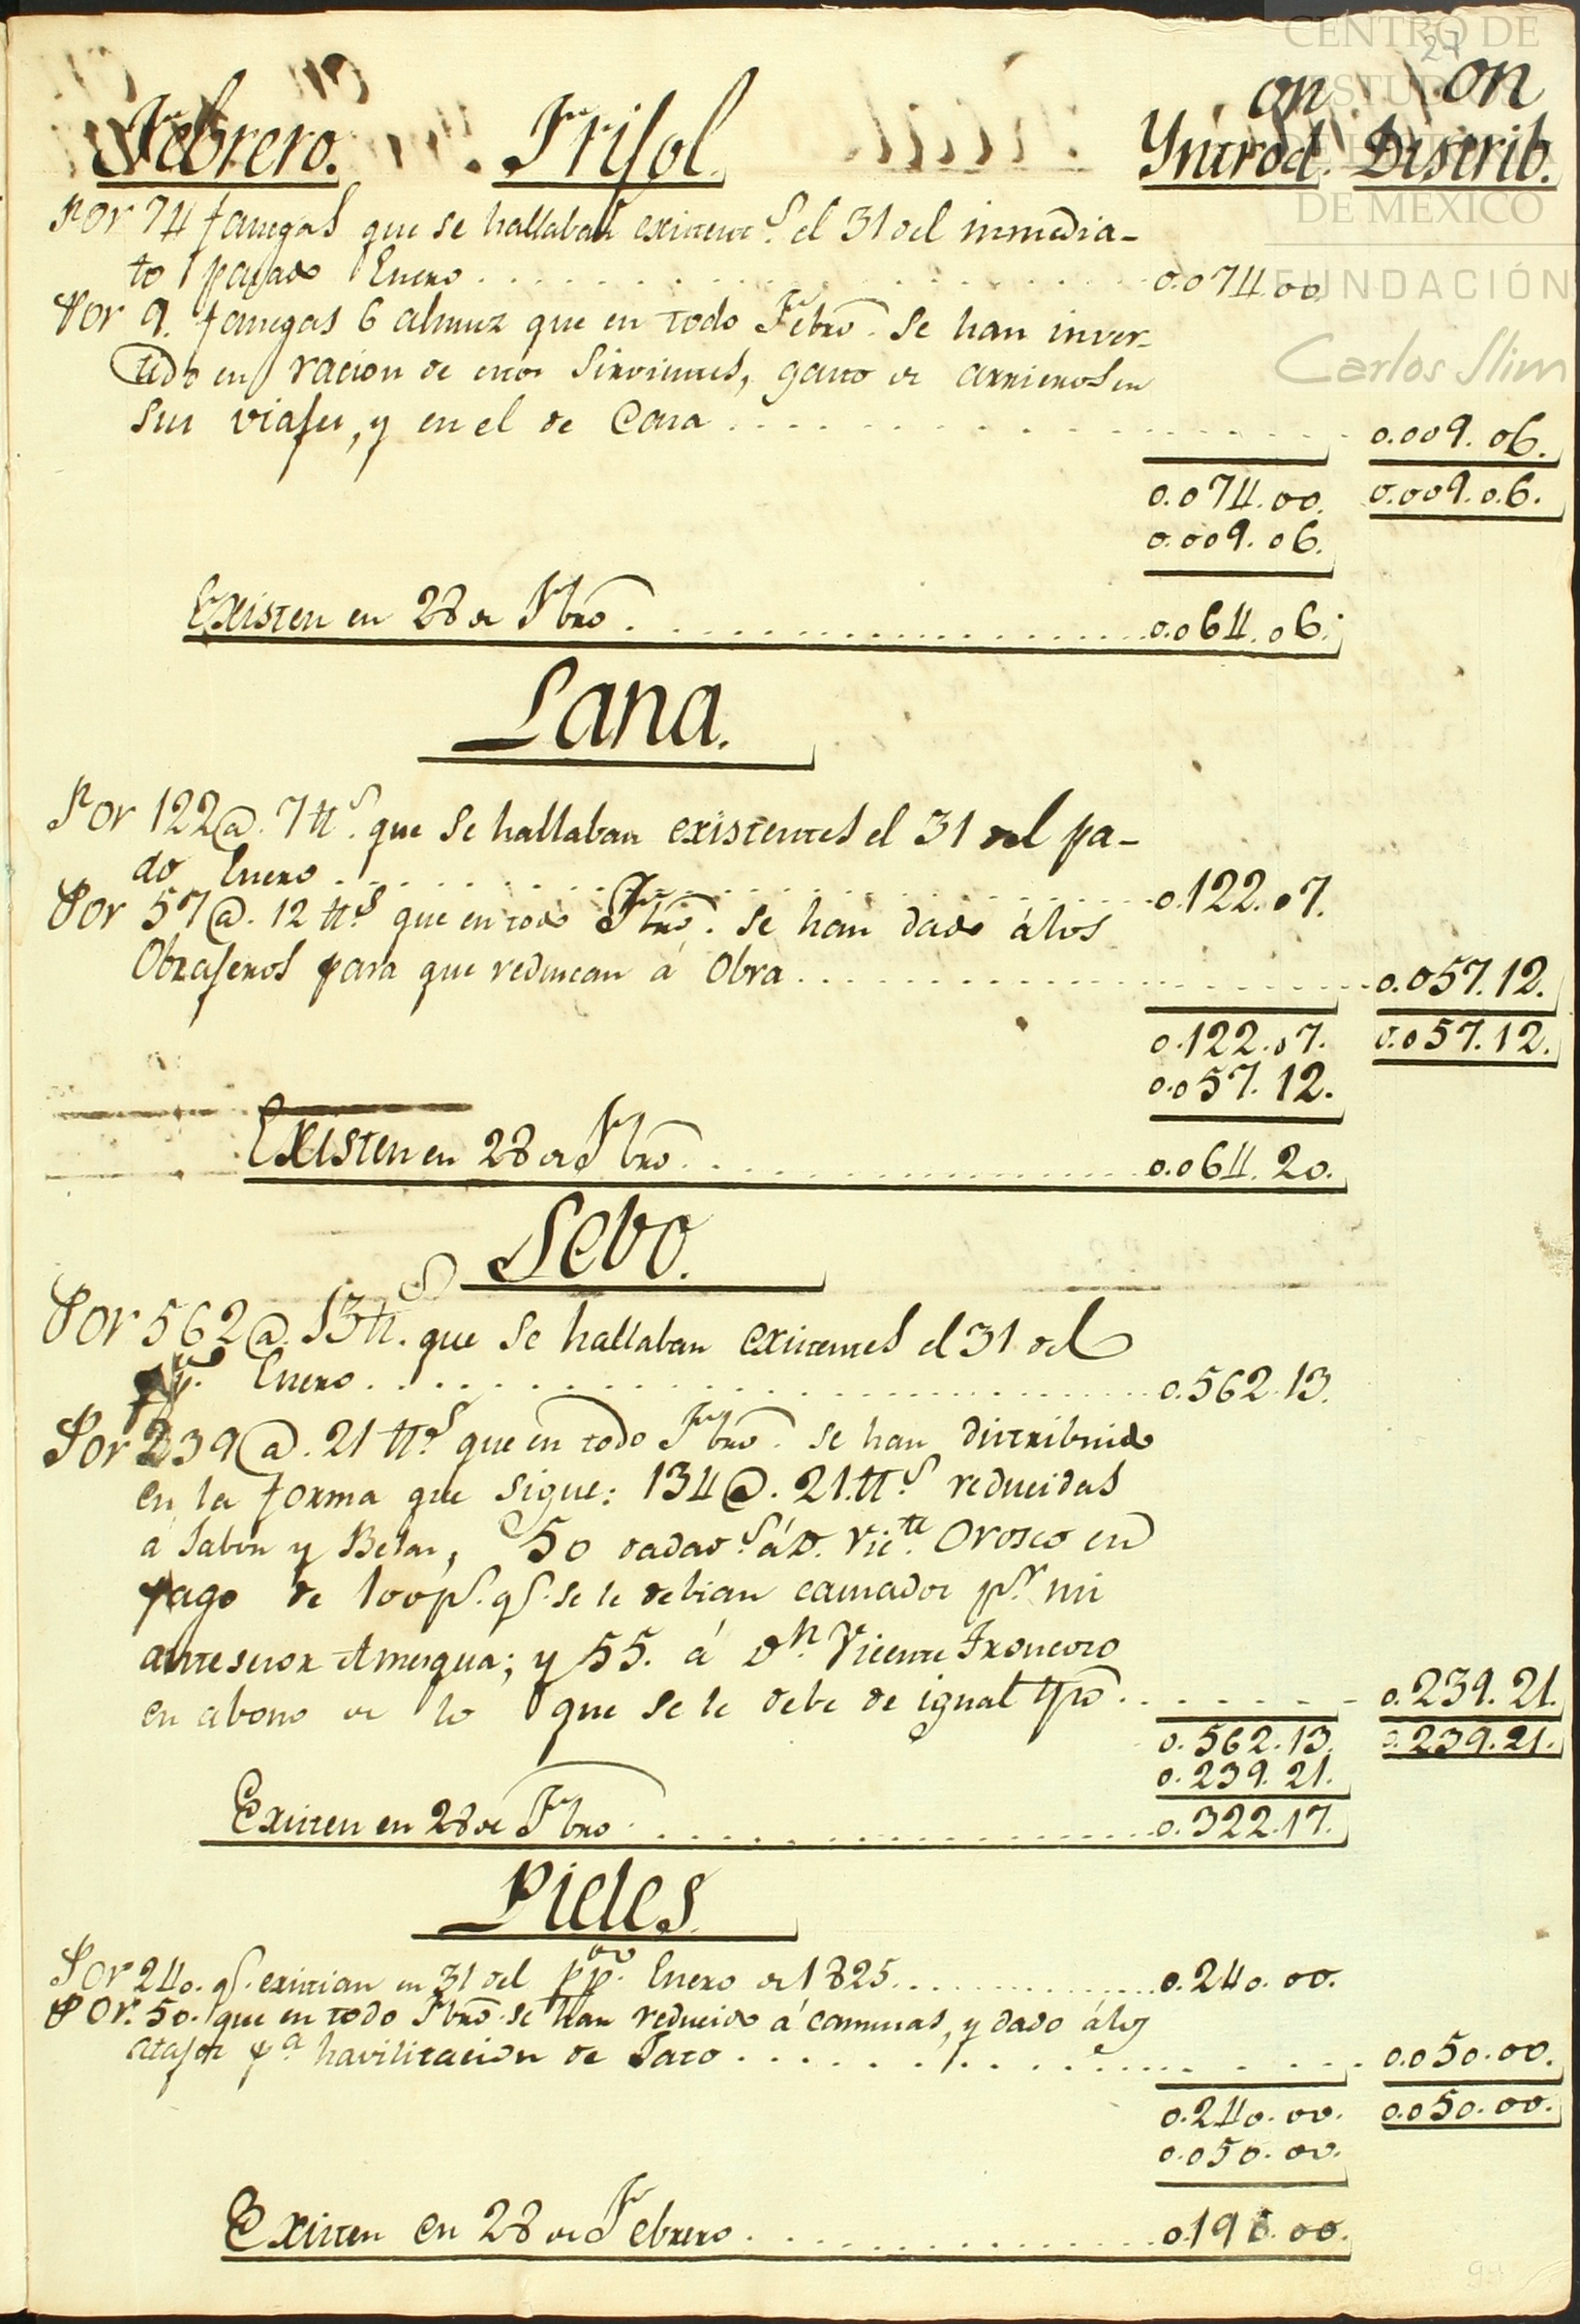 CENTRO DE
ESTUDIOS
DE HISTORIA
DE MEXICO
FUNDACIÓN
Carlos Slim
27
Febrero. Frisol. Yntrod.on Distrib.on
Por 74 fanegas que se hallaban existent.s el 31 del inmedia-
to pasado Enero 0.074.00
Por 9. fanegas 6 almuz que en todo Febro. se han inver-
tido en racion de estos Sirvientes, gasto de arrieros en
sus viajes, y en el de Casa 0.009.06.
0.074.00. 0.009.06.
0.009.06.
Existen en 28 de Fbro. 0.064.06.
Lana.
Por 122@. 7 tt.s que se hallaban existentes el 31 del pa-
do Enero 0.122.07.
Por 57@. 12 tt.s que en todo Fbro. se han dado á los
Obrajeros para que reduscan á Obra 0.057.12.
0.122.07. 0.057.12.
0.057.12.
Existen en 28 de Fbro. 0.064.20.
Sebo.
Por 562@. 13 tt.s que se hallaban existentes el 31 del
pp.do Enero 0.562.13.
Por 239@. 21 tt.s que en todo Fbro. se han distribuido
en la forma que sigue: 134@. 21 tt.s reducidas
á Jabon y Belas, 50 dadas á D. Vic.te Orosco en
pago de 100 p.s q.s se le debian causados p.r mi
antesesor Amesqua; y 55. á D.n Vicente Troncoso
en abono de lo que se le debe de igual tpo. 0.239.21.
0.562.13. 0.239.21.
0.239.21.
Existen en 28 de Fbro. 0.322.17.
Pieles.
Por 240. q.s existian en 31 del pp.do Enero de 1825. 0.240.00.
Por. 50. que en todo Fbro. se han reducido á camusas, y dado á los
atajos p.a havilitacion de Jato 0.050.00.
0.240.00. 0.050.00.
0.050.00.
Existen en 28 de Febrero. 0.190.00.